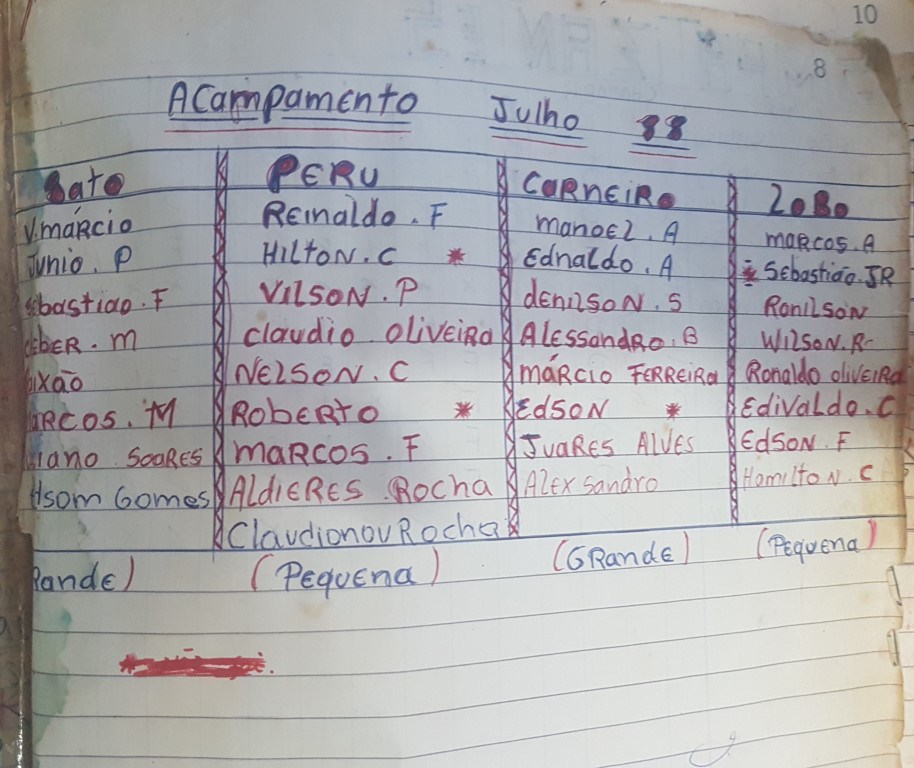 10
8
Acampamento Julho 88
Gato PERU CARNEIRO LOBO
V.márcio REinaldo.F manoEl.A maRcos.A
Junio.P HiltoN.C * Ednaldo.A * Sebastião.JR
ebastião.F VilsoN.P dEnilsoN.S RonilsoN
EBER.m Claudio OlivEira AlEssandRo.B WilsoN.R
aixão NElsoN.C máRcio FERREiRa Ronaldo olivEiRa
aRcos.M RobERto * EdsoN * Edivaldo.C
iano SoaREs maRcos.F JuaREs AlvEs EdsoN.F
lsom GomEs AldiEREs.Rocha AlEx sandro HamiltoN.C
Claudionou Rocha
RandE) (PEquEna) (GRandE) (PEquEna)